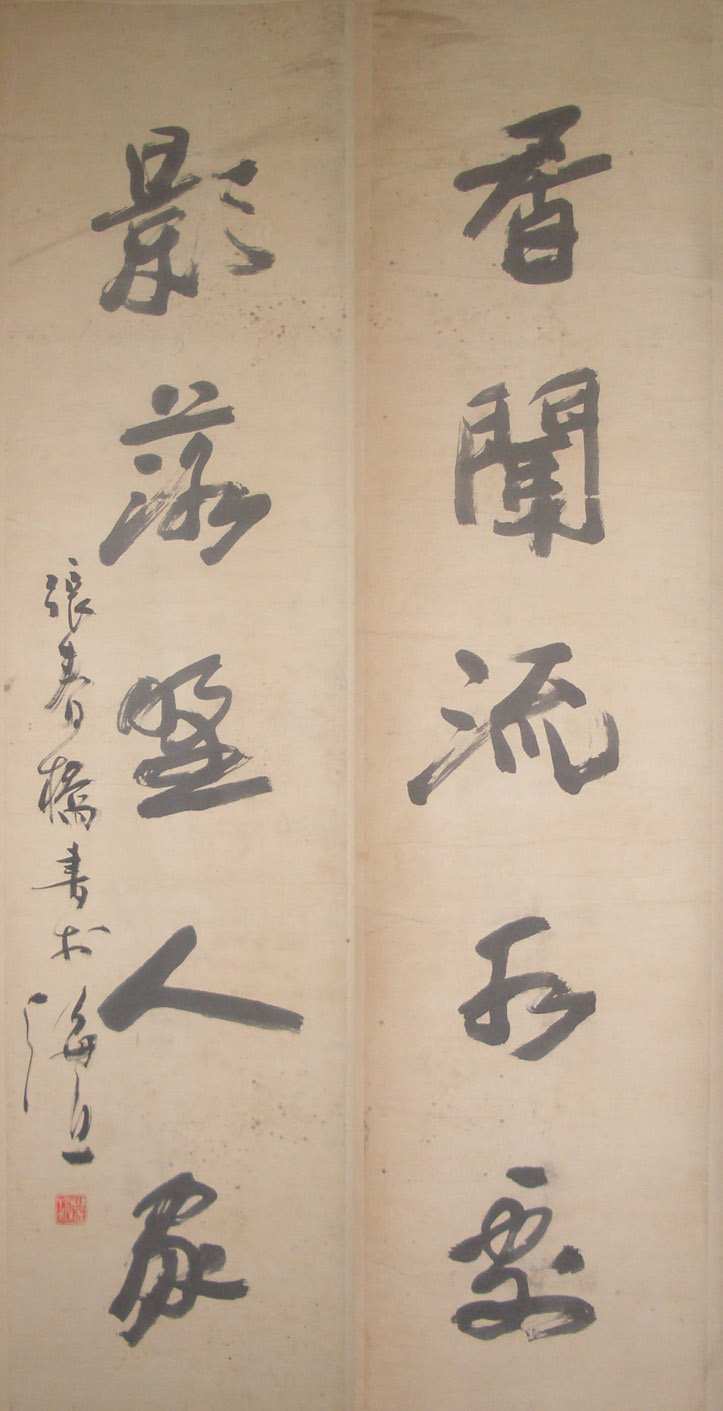 香聞流水處
影落野人家
張春橋書於海上